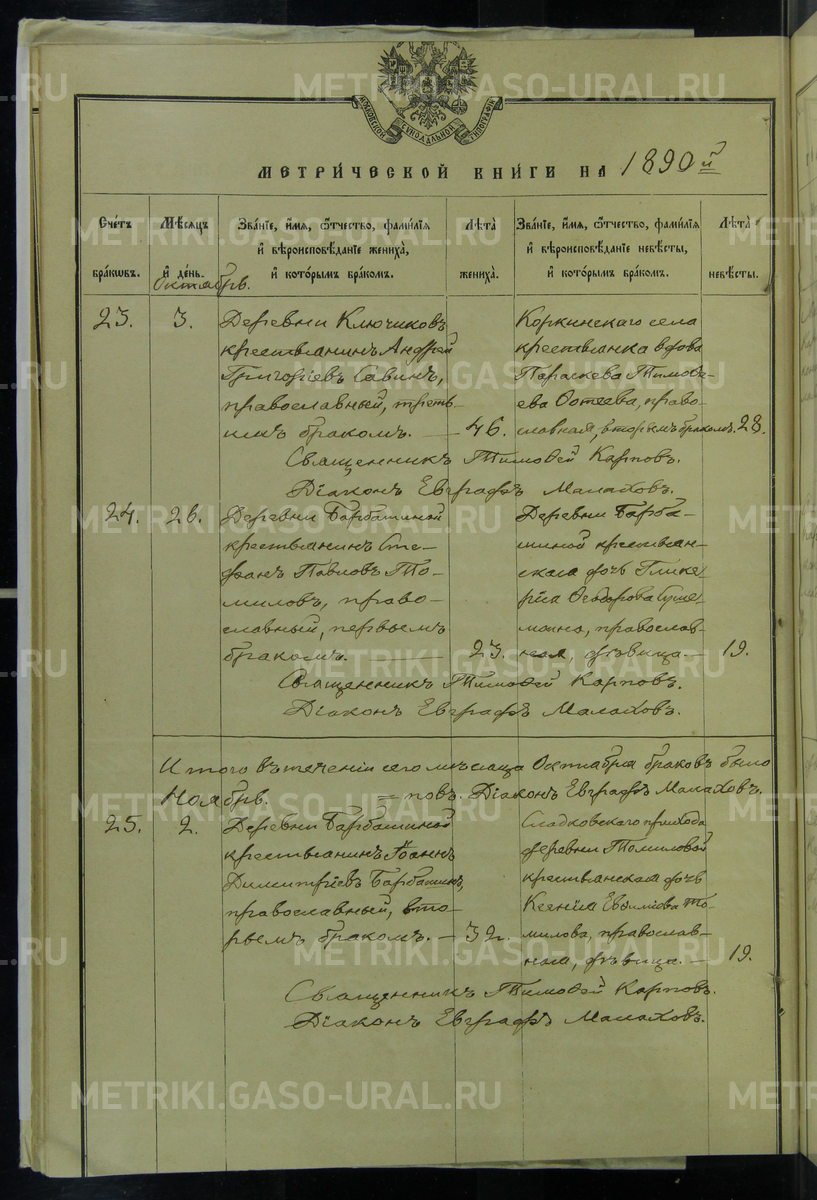 МОСКОВСКОЙ СѴНОДАЛЬНОЙ ТИПОГРАФІИ
МЕТРИ́ЧЕСКОЙ КНИ́ГИ НА 1890 й
Сче́тъ бра́кѡвъ.
Мѣ́сѧцъ и҆ де́нь.
Зва́нїе, и҆́мѧ, ѻ҆́тчество, фами́лїѧ
и҆ вѣроисповѣ́данїе жениха̀,
и҆ кото́рымъ бра́комъ.
Лѣ́та жениха̀.
Зва́нїе, и҆́мѧ, ѻ҆́тчество, фами́лїѧ
и҆ вѣроисповѣ́данїе невѣ́сты,
и҆ кото́рымъ бра́комъ.
Лѣ́та невѣ́сты.
Октябрь.
23. 3.
Деревни Ключиковъ
крестьянинъ Андрей
Григоріевъ Савинъ,
православный, треть-
имъ бракомъ. — 46.
Коркинскаго села
крестьянка вдова
Параскева Тимоѳе-
ева, право-
славная, вторымъ бракомъ. 28.
Священникъ Тимоѳей Карповъ.
Діаконъ Евграфъ Малаховъ.
24. 26.
Деревни Барбашиной
крестьянинъ Сте-
фанъ Павловъ То-
миловъ, право-
славный, первымъ
бракомъ. — 23.
Деревни Барба-
шиной крестьян-
ская дочь Глике-
рія Ѳеодорова
православ-
ная, дѣвица. — 19.
Священникъ Тимоѳей Карповъ.
Діаконъ Евграфъ Малаховъ.
Итого въ теченіи сего мѣсяца Октября браковъ было
Ноябрь. = Діаконъ Евграфъ Малаховъ.
25. 2.
Деревни Барбашиной
крестьянинъ Іоаннъ
Димитріевъ Барбашинъ,
православный, вто-
рымъ бракомъ. — 32.
Сладковскаго прихода
деревни Томиловой
крестьянская дочь
Ксенія Евѳиміева То-
милова, православ-
ная, дѣвица. — 19.
Священникъ Тимоѳей Карповъ.
Діаконъ Евграфъ Малаховъ.
METRIKI.GASO-URAL.RU